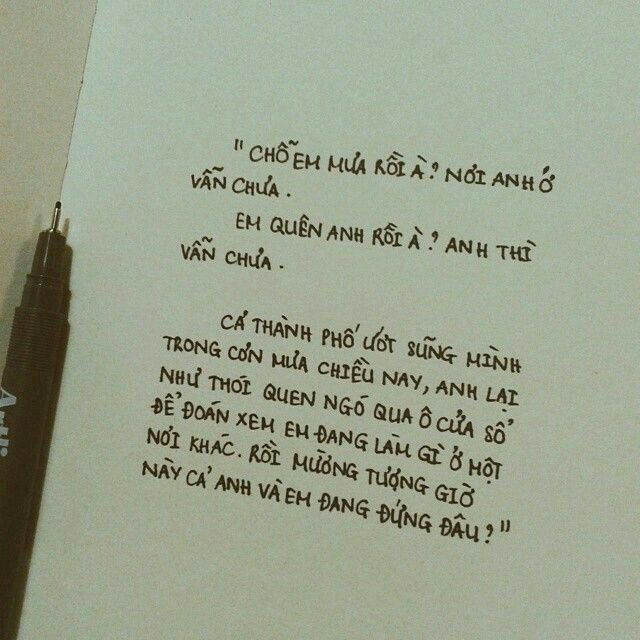 " CHỖ EM MƯA RỒI À? NƠI ANH Ở
VẪN CHƯA.
EM QUÊN ANH RỒI À? ANH THÌ
VẪN CHƯA.
CẢ THÀNH PHỐ ƯỚT SŨNG MÌNH
TRONG CƠN MƯA CHIỀU NAY, ANH LẠI
NHƯ THÓI QUEN NGÓ QUA Ô CỬA SỔ
ĐỂ ĐOÁN XEM EM ĐANG LÀM GÌ Ở MỘT
NƠI KHÁC. RỒI MƯỜNG TƯỢNG GIỜ
NÀY CẢ ANH VÀ EM ĐANG ĐỨNG ĐÂU?"